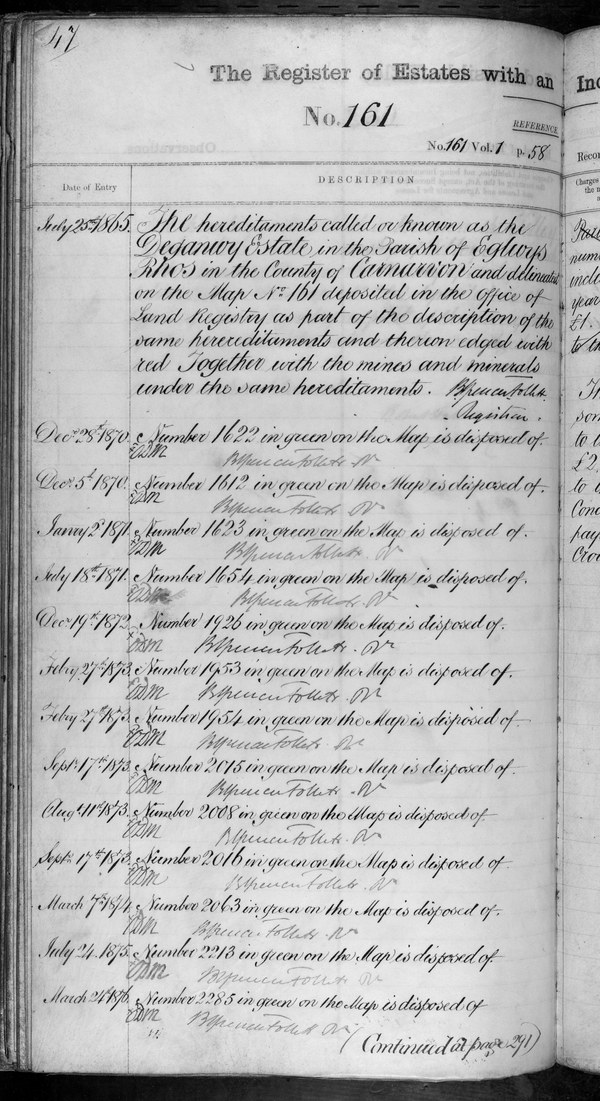 47
The Register of Estates with an
No. 161
REFERENCE
No. 161 Vol. 1 p. 58
Date of Entry
DESCRIPTION
July 25th 1865. The hereditaments called or known as the
Deganwy Estate in the Parish of Eglwys
Rhos in the County of Carnarvon and delineated
on the Map No. 161 deposited in the Office of
Land Registry as part of the description of the
same herereditaments and thereon edged with
red Together with the mines and minerals
under the same hereditaments. B Spencer Follett.
Registrar.
Decr. 28th 1870. Number 1622 in green on the Map is disposed of.
EDM B Spencer Follett. Rr
Decr. 5th 1870. Number 1612 in green on the Map is disposed of.
EDM B Spencer Follett. Rr
Janry 2d 1871. Number 1623 in green on the Map is disposed of.
EDM B Spencer Follett. Rr
July 18th 1871. Number 1654 in green on the Map is disposed of.
EDM B Spencer Follett. Rr
Decr 19th 1872. Number 1926 in green on the Map is disposed of.
EDM B Spencer Follett. Rr
Febry 27th 1873. Number 1953 in green on the Map is disposed of.
EDM B Spencer Follett. Rr
Febry 27th 1873. Number 1954 in green on the Map is disposed of.
EDM B Spencer Follett. Rr
Septr. 17th 1873. Number 2015 in green on the Map is disposed of.
EDM B Spencer Follett. Rr
Augt. 11th 1873. Number 2008 in green on the Map is disposed of
EDM B Spencer Follett. Rr
Septr. 17th 1873. Number 2016 in green on the Map is disposed of.
EDM B Spencer Follett. Rr
March 7th 1874. Number 2063 in green on the Map is disposed of.
EDM B Spencer Follett. Rr
July 24. 1875. Number 2213 in green on the Map is disposed of.
EDM B Spencer Follett Rr
March 24th 1876. Number 2285 in green on the Map is disposed of
EDM B Spencer Follett Rr
(Continued at page 291)